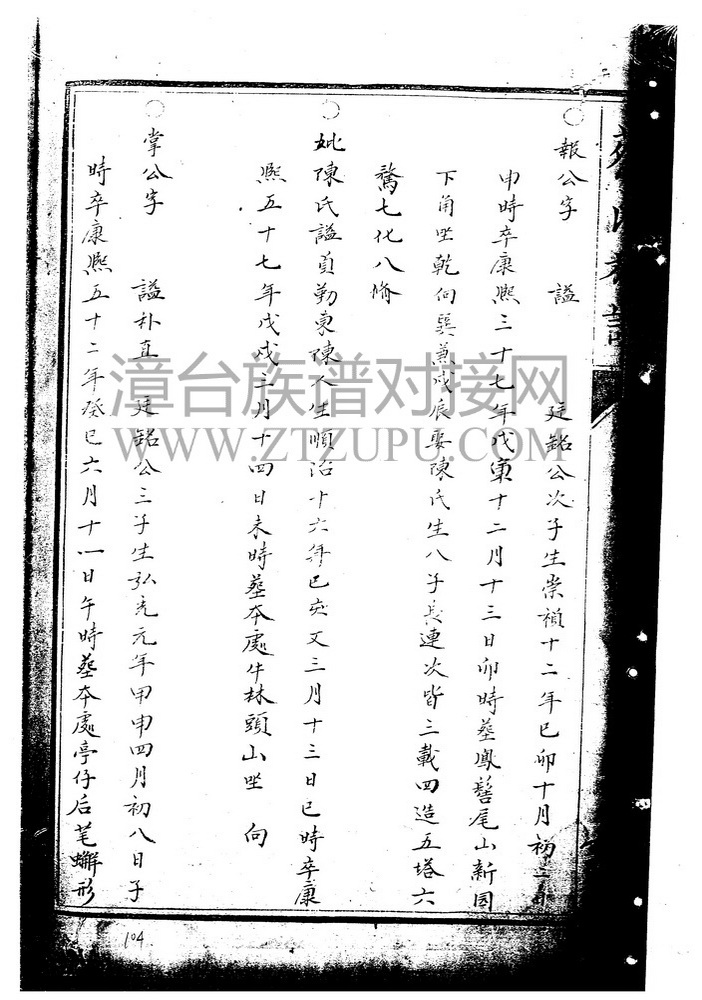 ○報公字 謚 廷銘公次子生崇禎十二年己卯十月初二日
申時卒康熙三十七年戊寅十二月十三日卯時塟鳳髻尾山新園
下角坐乾向巽兼戌辰娶陳氏生八子長連次皆三載四造五塔六
騖七化八脩
○妣陳氏謚貞勤東陳人生順治十六年己亥又三月十三日巳時卒康
熙五十七年戊戌三月十四日未時塟本處牛林頭山坐 向
○掌公字 謚朴直 廷銘公三子生弘光元年甲申四月初八日子
時卒康熙五十二年癸巳六月十一日午時塟本處亭仔后毛蠏形
104
漳台族谱对接网
WWW.ZTZUPU.COM